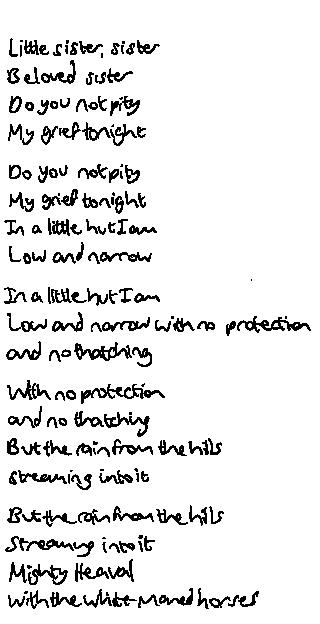 Little sister, sister
Beloved sister
Do you not pity
My grief tonight
Do you not pity
My grief tonight
In a little hut I am
Low and narrow
In a little hut I am
Low and narrow with no protection
and no thatching
With no protection
and no thatching
But the rain from the hills
streaming into it
But the rain from the hills
Streaming into it
Mighty Heaval
With the white-maned horses